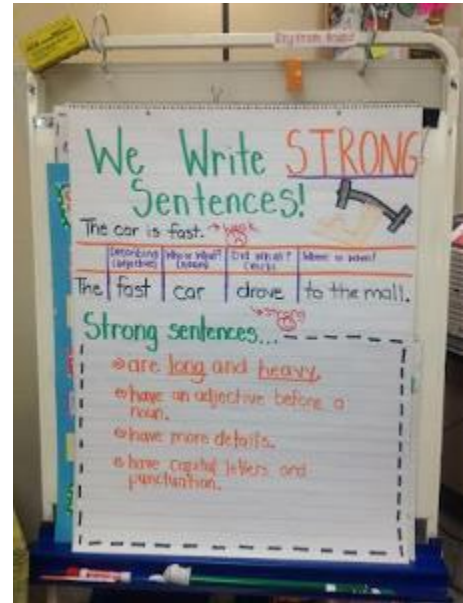 We Write STRONG
Sentences!
The car is fast. → weak
Describing Who or What? Did What? Where or when?
(adjective) (noun) (verb)
The fast car drove to the mall.
→ strong
Strong sentences...
are long and heavy.
have an adjective before a
noun.
have more details.
have capital letters and
punctuation.